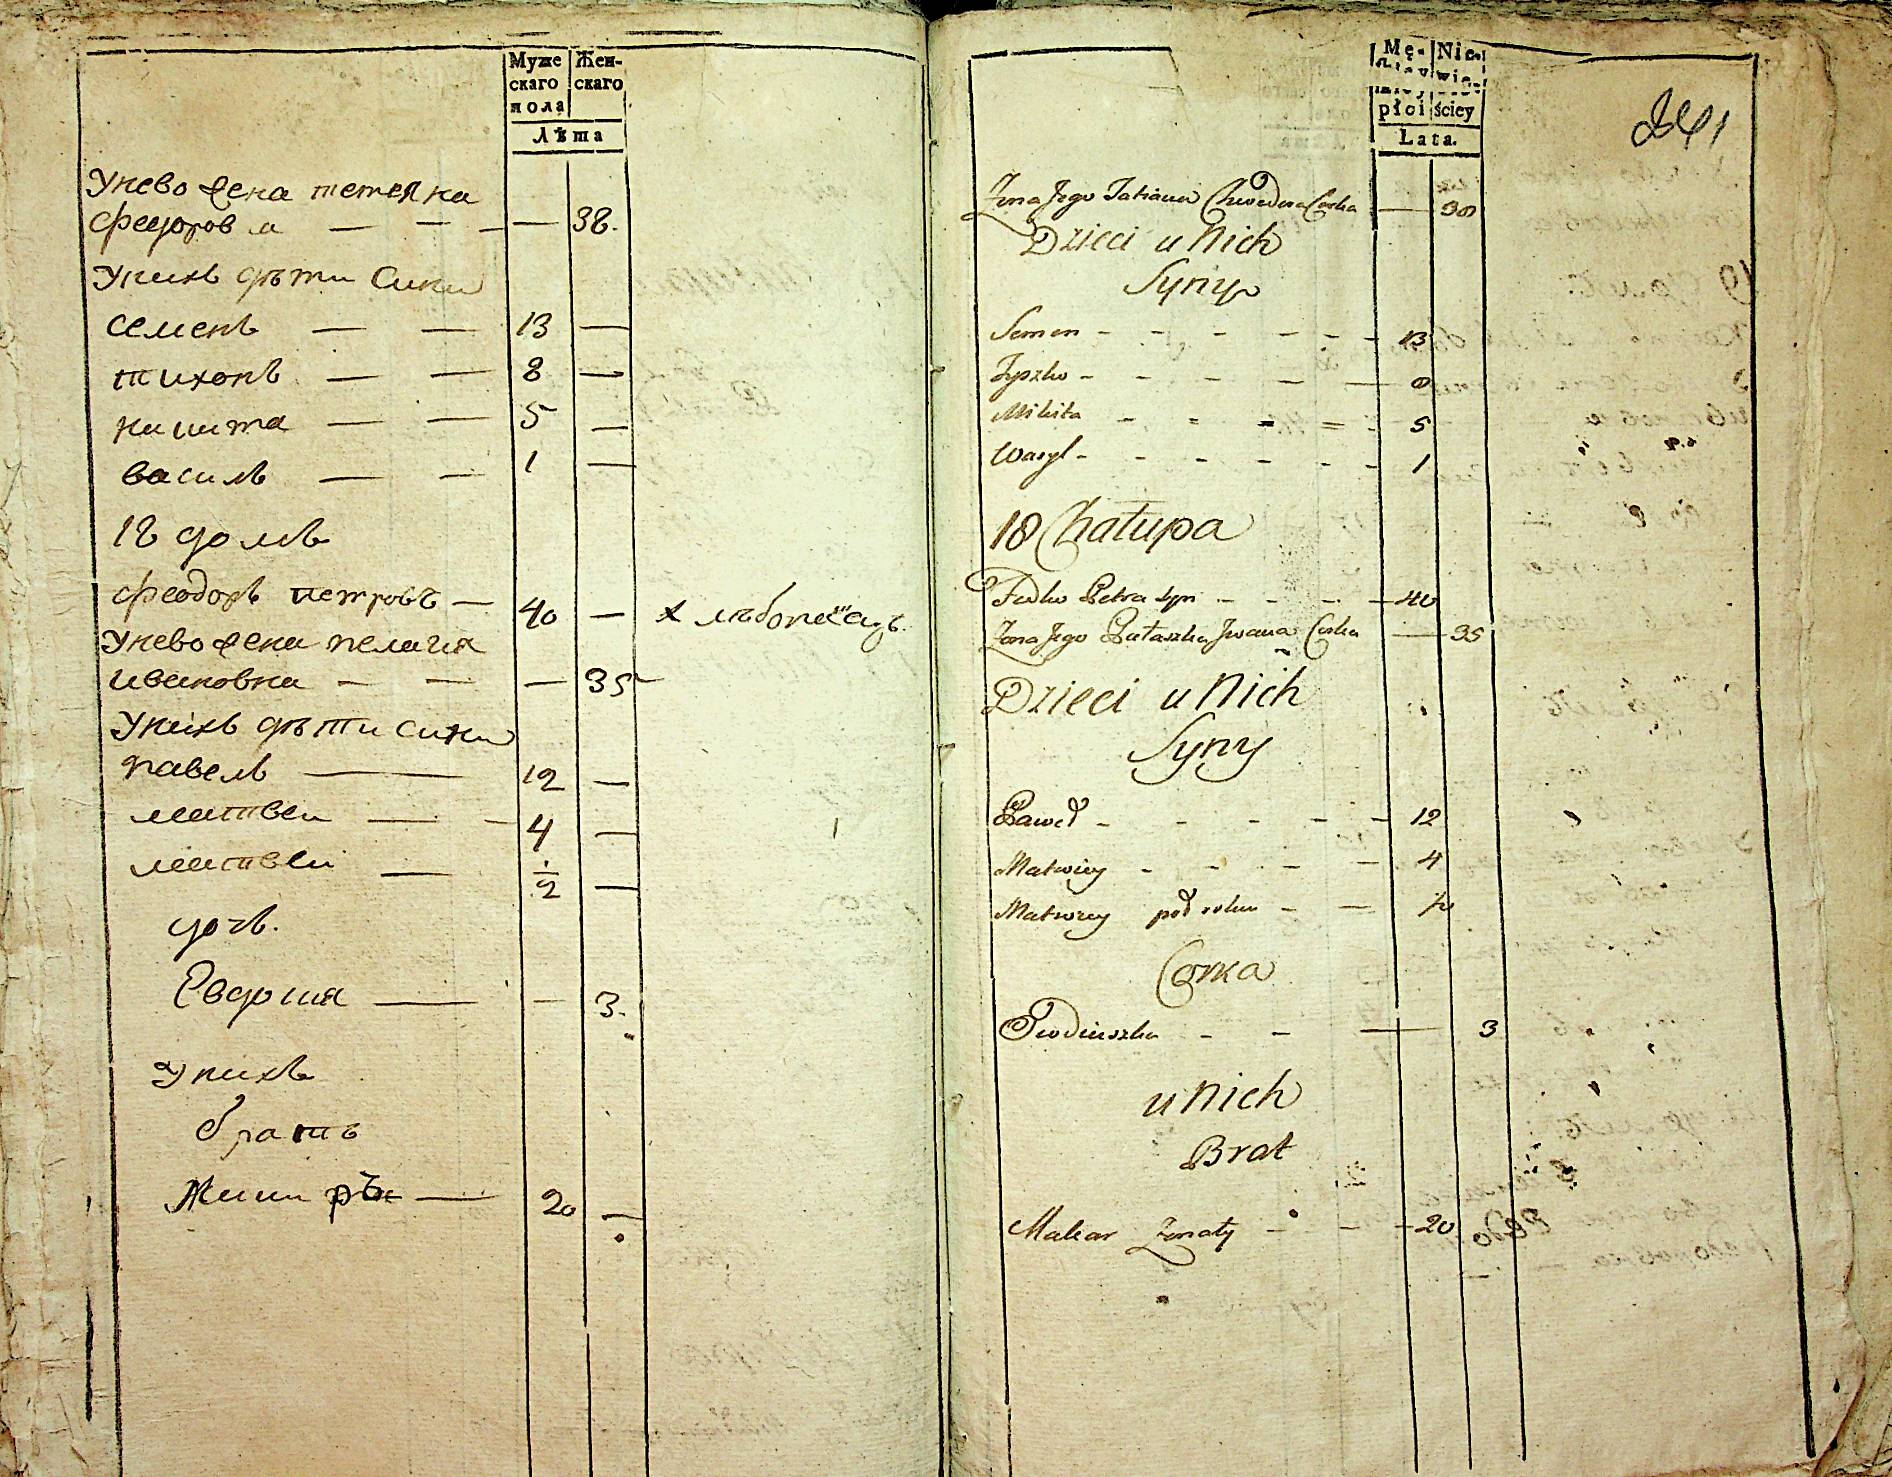 Муже
скаго
пола
Жен-
скаго
Лѣта
Унево жена тетяна
Федорова — — — — 38.
Унихъ дѣти сини
семенъ — — 13 —
тихонъ — — 8 —
никита — — 5 —
василь — — 1 —
18 домъ
Феодоръ петровъ — 40 — хлѣбопашецъ.
Унево жена пелагия
ивановна — — — 35
Унихъ дѣти сини
павелъ — 12 —
матвеи — — 4 —
матвеи — 1/2 —
дочь.
Евдокия — — 3.
Унихъ
братъ
— 20 —
Mę-
płci
Nie-
wie-
ściey
Lata.
241
Zona Jego Tatiana Chwedora Corka — 38
Dzieci u Nich
Syny
Semen - - - - - - 13
Tyszko - - - - — 8
Mikita - - - = - 5
Wasyl - - - - - - 1
18 Chałupa
Fedko Petra syn - - - - 40
Zona Jego Pałaszka Jwana Corka — 35
Dzieci u Nich
Syny
Paweł - - - - - 12
Matwiey - - - - 4
Matwiey pod rokiem - — 1/2
Corka
Ewdiuszka - - — 3
u Nich
Brat
Makar Zonaty - - - 20